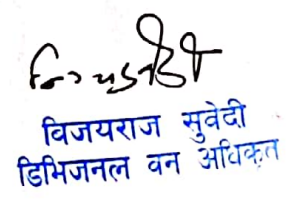 विजयराज सुवेदी
डिभिजनल वन अधिकृत